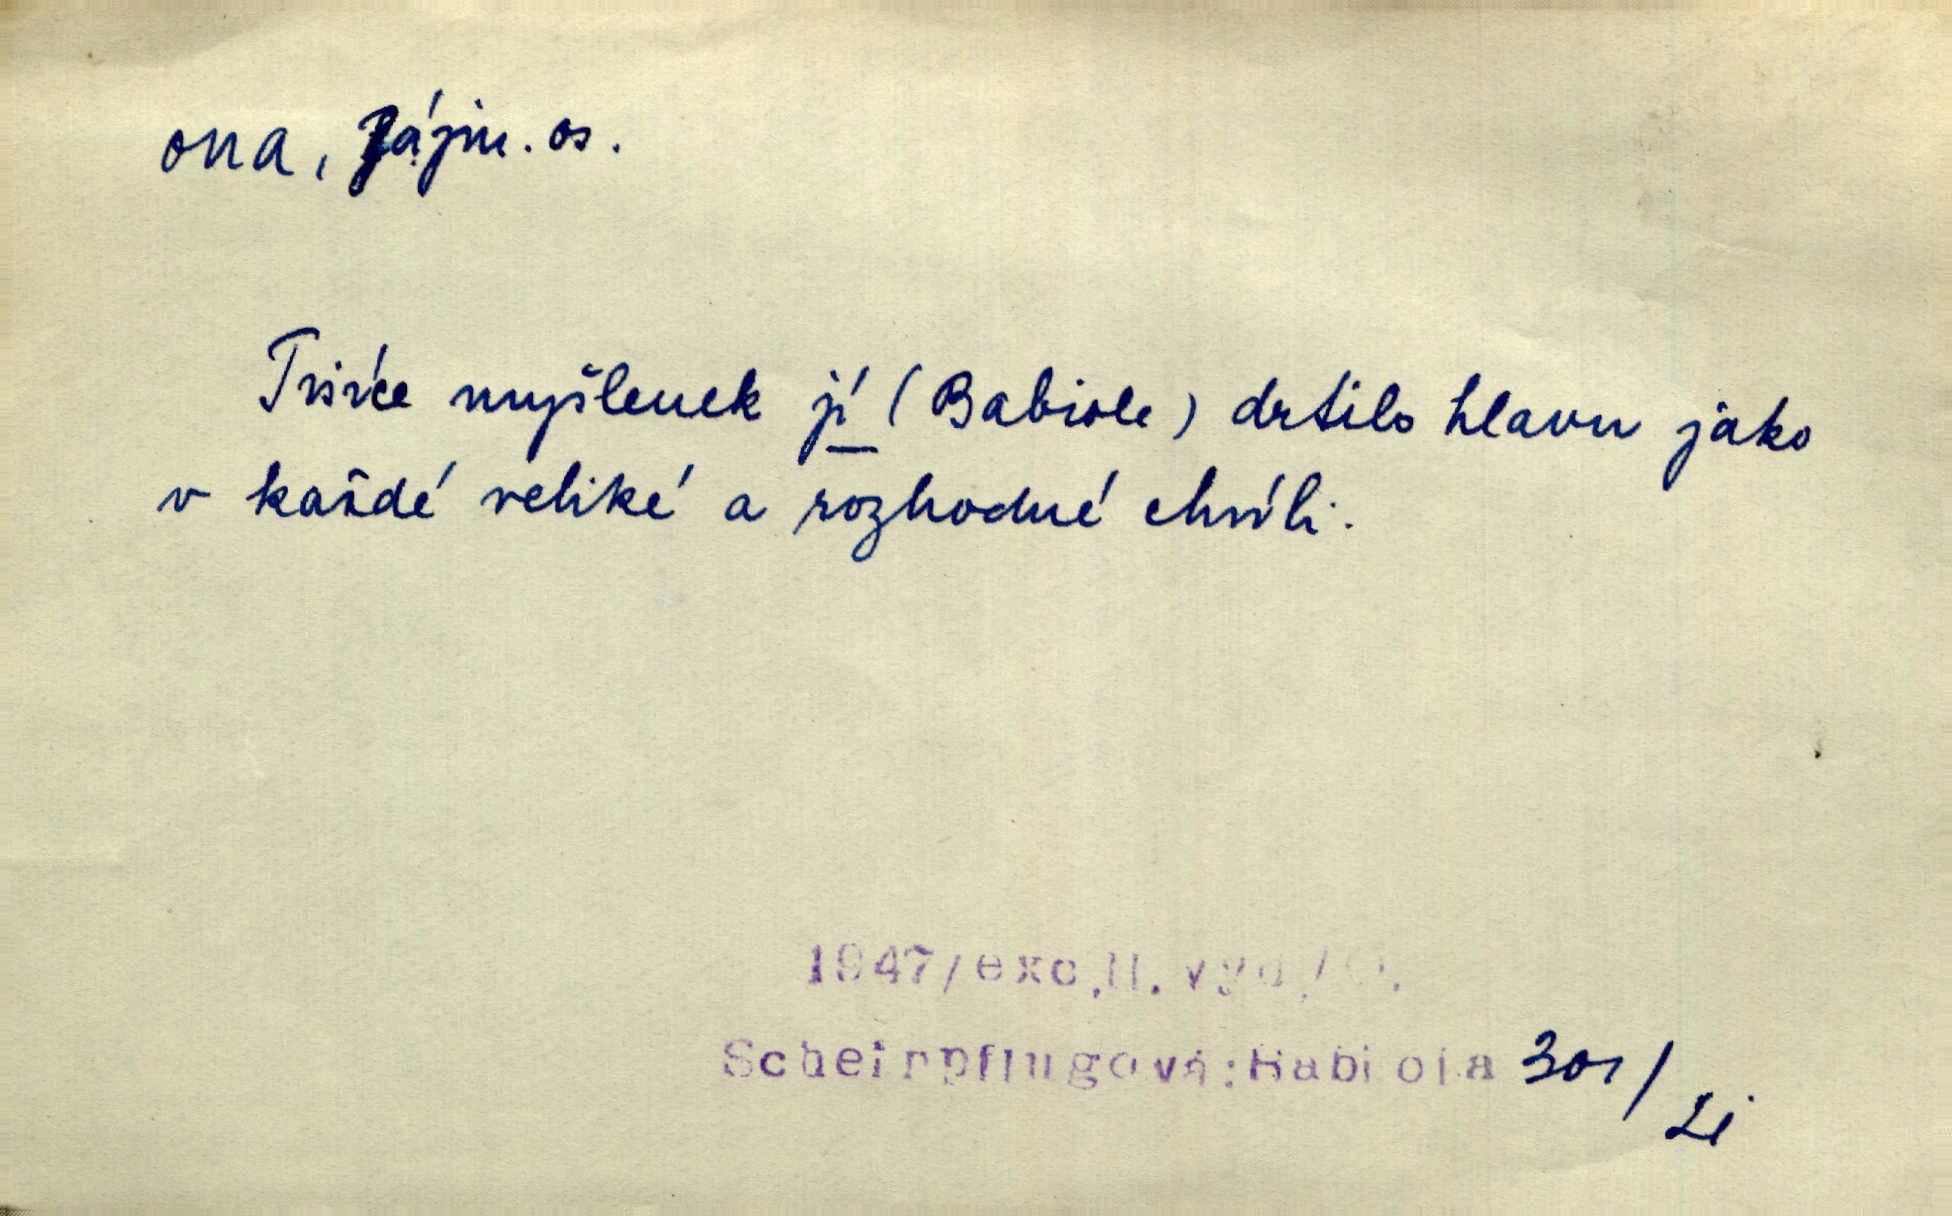 ona, zájm. os.
Tisíce myšlenek jí (Babiole) drtilo hlavu jako
v každé veliké a rozhodné chvíli.
1947/exc.II. vyd./O.
Scheinpflugová:Babiola 301/
Li